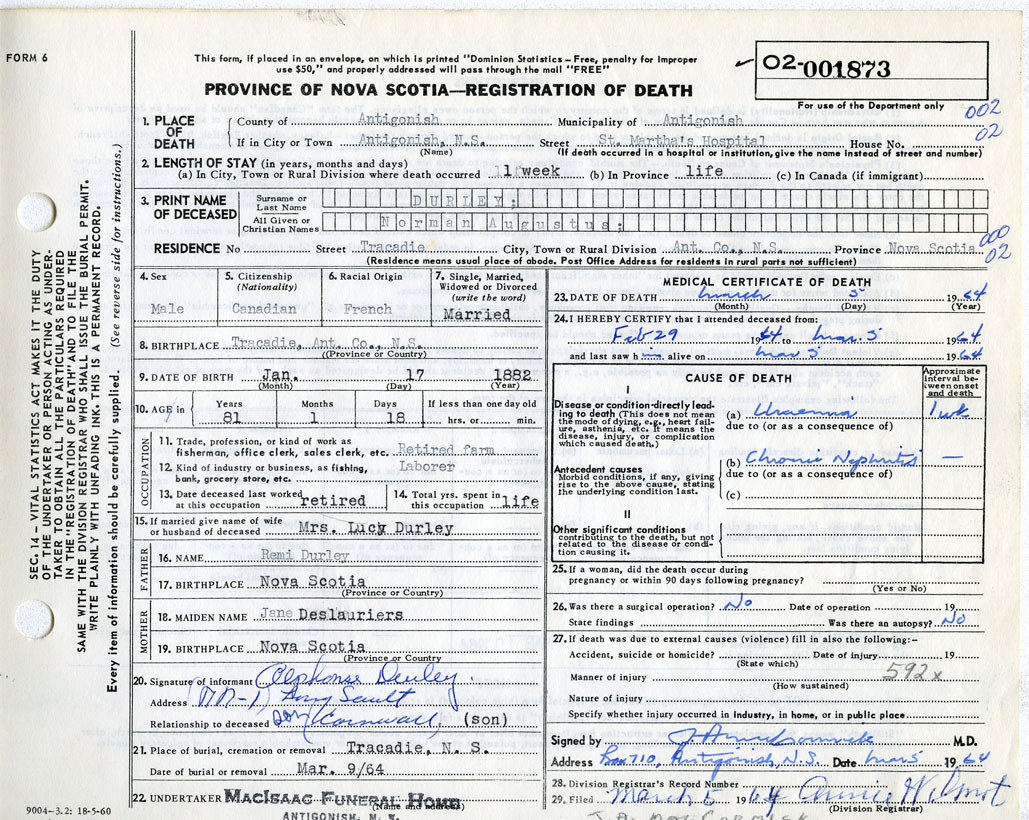 1964
FORM 6
This form, if placed in an envelope, on which is printed "Dominion Statistics – Free, penalty for improper
use $50," and properly addressed will pass through the mail "FREE"
PROVINCE OF NOVA SCOTIA—REGISTRATION OF DEATH
✓ 02-001873
For use of the Department only
002
02
1. PLACE OF DEATH
County of Antigonish Municipality of Antigonish
If in City or Town Antigonish, N.S. Street St. Martha's Hospital House No.
(Name) (If death occurred in a hospital or institution, give the name instead of street and number)
2. LENGTH OF STAY (in years, months and days)
(a) In City, Town or Rural Division where death occurred 1 week (b) In Province life (c) In Canada (if immigrant)
3. PRINT NAME OF DECEASED
Surname or Last Name DURLEY;
All Given or Christian Names Norman Augustus;
000
02
RESIDENCE No Street Tracadie City, Town or Rural Division Ant. Co., N.S. Province Nova Scotia
(Residence means usual place of abode. Post Office Address for residents in rural parts not sufficient)
4. Sex Male
5. Citizenship (Nationality) Canadian
6. Racial Origin French
7. Single, Married, Widowed or Divorced (write the word) Married
8. BIRTHPLACE Tracadie, Ant. Co., N.S.
(Province or Country)
9. DATE OF BIRTH Jan. 17 1882
(Month) (Day) (Year)
10. AGE in Years 81 Months 1 Days 18 If less than one day old hrs. or min.
OCCUPATION
11. Trade, profession, or kind of work as
fisherman, office clerk, sales clerk, etc. Retired farm
12. Kind of industry or business, as fishing, Laborer
bank, grocery store, etc.
13. Date deceased last worked at this occupation retired
14. Total yrs. spent in this occupation life
15. If married give name of wife
or husband of deceased Mrs. Lucy Durley
FATHER
16. NAME Remi Durley
17. BIRTHPLACE Nova Scotia
(Province or Country)
MOTHER
18. MAIDEN NAME Jane Deslauriers
19. BIRTHPLACE Nova Scotia
(Province or Country
20. Signature of informant Alphonse Durley.
Address (RR-1) Long Sault
Relationship to deceased son (Cornwall) (son)
21. Place of burial, cremation or removal Tracadie, N. S.
Date of burial or removal Mar. 9/64
22. UNDERTAKER MACISAAC FUNERAL HOME
(Name and address)
ANTIGONISH, N. S.
MEDICAL CERTIFICATE OF DEATH
23. DATE OF DEATH March 5 1964
(Month) (Day) (Year)
24. I HEREBY CERTIFY that I attended deceased from:
Feb 29 1964 to Mar. 5 1964
and last saw h im alive on Mar 5 1964
CAUSE OF DEATH
Approximate interval between onset and death
I
Disease or condition directly leading to death (This does not mean the mode of dying, e.g., heart failure, asthenia, etc. It means the disease, injury, or complication which caused death.)
(a) Uraemia 1 wk
due to (or as a consequence of)
Antecedent causes
Morbid conditions, if any, giving rise to the above cause, stating the underlying condition last.
(b) Chronic Nephritis —
due to (or as a consequence of)
(c)
II
Other significant conditions contributing to the death, but not related to the disease or condition causing it.
25. If a woman, did the death occur during
pregnancy or within 90 days following pregnancy?
(Yes or No)
26. Was there a surgical operation? No Date of operation 19
State findings Was there an autopsy? No
27. If death was due to external causes (violence) fill in also the following:–
Accident, suicide or homicide? Date of injury 19
(State which)
592x
Manner of injury
(How sustained)
Nature of injury
Specify whether injury occurred in industry, in home, or in public place
Signed by M.D.
Address Box 710, Antigonish, N.S. Date Mar 5 1964
28. Division Registrar's Record Number
29. Filed March 5 1964 Annie Wilmot
(Division Registrar)
SEC. 14 – VITAL STATISTICS ACT MAKES IT THE DUTY
OF THE UNDERTAKER OR PERSON ACTING AS UNDER-
TAKER TO OBTAIN ALL THE PARTICULARS REQUIRED
IN THE "REGISTRATION OF DEATH" AND TO FILE THE
SAME WITH THE DIVISION REGISTRAR WHO SHALL ISSUE THE BURIAL PERMIT.
WRITE PLAINLY WITH UNFADING INK. THIS IS A PERMANENT RECORD.
Every item of information should be carefully supplied. (See reverse side for instructions.)
9004–3.2: 18-5-60